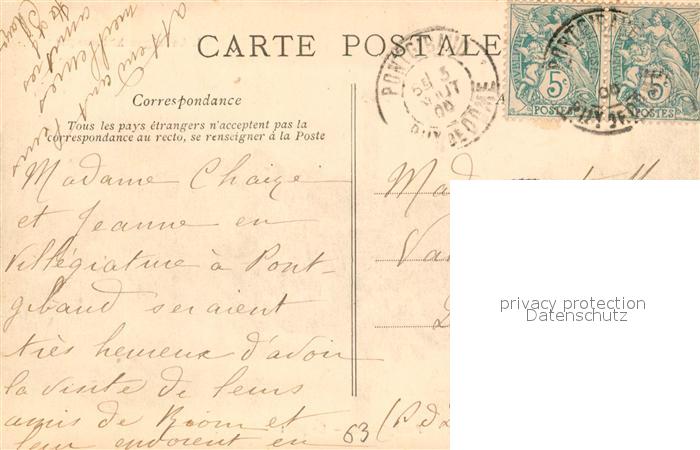 CARTE POSTALE
Correspondance
Tous les pays étrangers n'acceptent pas la
correspondance au recto, se renseigner à la Poste
Madame Chaize
et Jeanne en
Villégiature à Pont-
gibaud seraient
très heureux d'avoir
la visite de leurs
amis de Riom et
leur envoient en
attendant leurs
meilleures
amitiés
PUY DE DOME
5
AOUT
5c
POSTES
5c
POSTES
PUY DE DOME
Mad
Va
(P d
63
privacy protection
Datenschutz